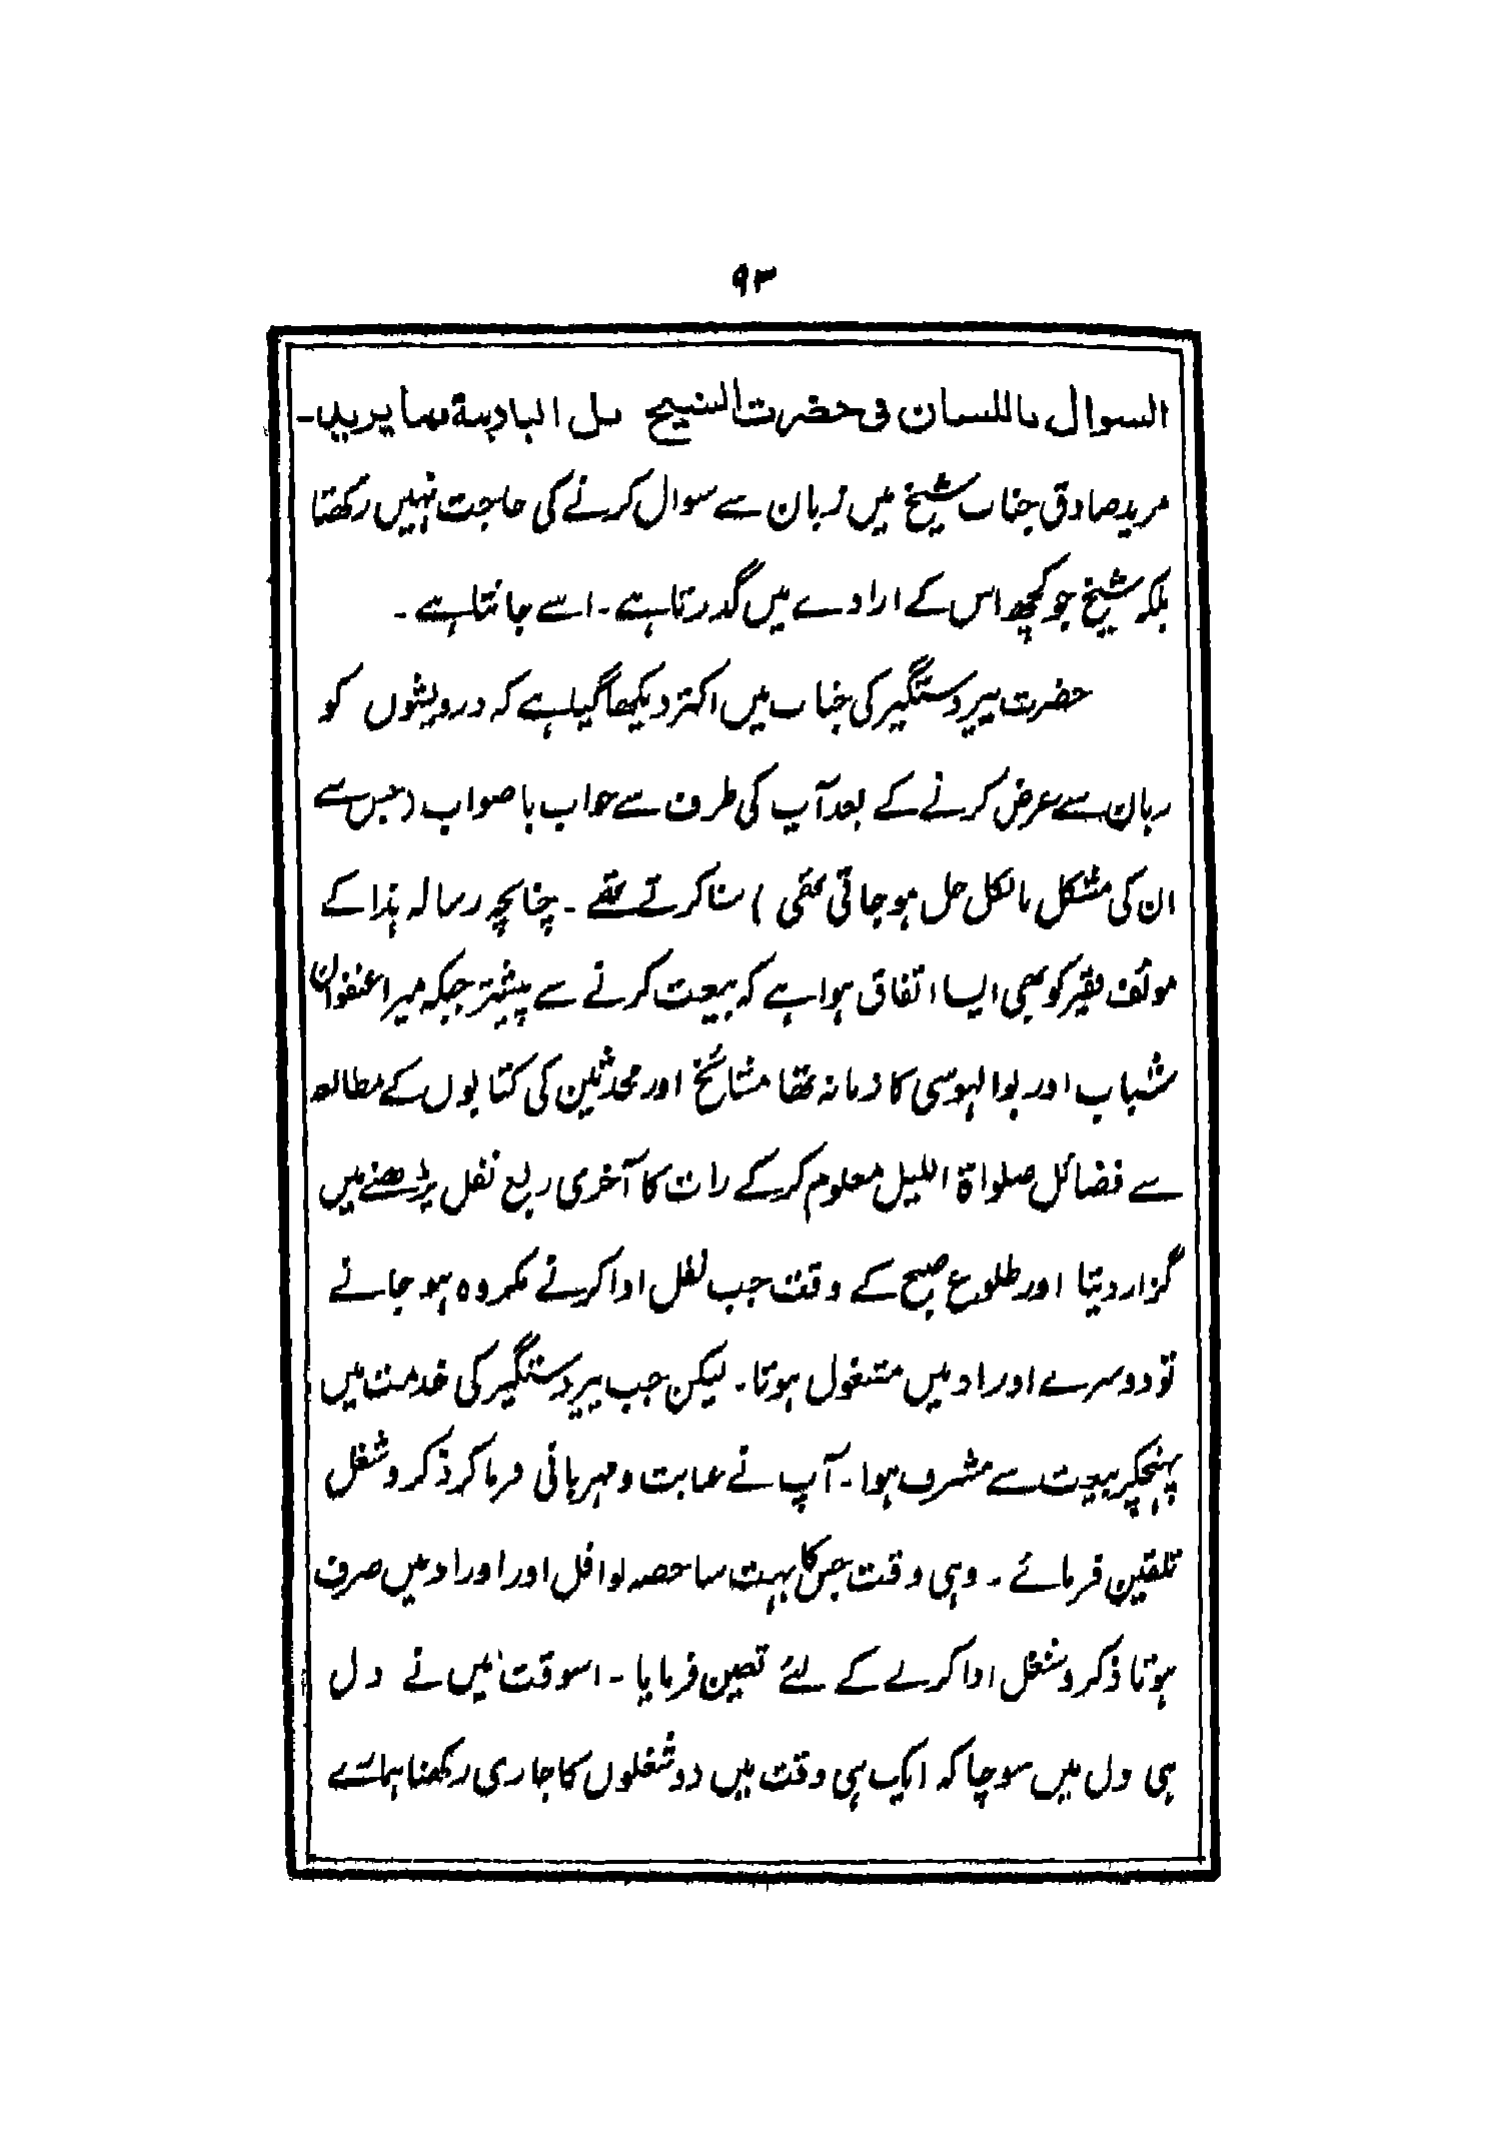 ۹۳
السوال باللسان فی حضرت الشیخ بل البادیۃ بما یرید۔
مرید صادق جناب شیخ میں زبان سے سوال کرنے کی حاجت نہیں رکھتا
بلکہ شیخ جو کچھ اس کے ارادے میں گذرتا ہے۔ اسے جانتا ہے۔
حضرت پیر دستگیر کی جناب میں اکثر دیکھا گیا ہے کہ درویشوں کو
زبان سے عرض کرنے کے بعد آپ کی طرف سے جواب باصواب (جس سے
ان کی مشکل بالکل حل ہو جاتی تھی) سنا کرتے تھے۔ چنانچہ رسالہ ہٰذا کے
مولف فقیر کو بھی ایسا اتفاق ہوا ہے کہ بیعت کرنے سے پیشتر جبکہ میرا عنفوان
شباب اور بوالہوسی کا زمانہ تھا مشائخ اور محدثین کی کتابوں کے مطالعہ
سے فضائل صلواۃ اللیل معلوم کر کے رات کا آخری ربع نفل پڑھنے میں
گزار دیتا اور طلوع صبح کے وقت جب نفل ادا کرنے مکروہ ہو جاتے
تو دوسرے اوراد میں مشغول ہوتا۔ لیکن جب پیر دستگیر کی خدمت میں
پہنچکر بیعت سے مشرف ہوا۔ آپ نے عنایت و مہربانی فرما کر ذکر و شغل
تلقین فرمائے۔ وہی وقت جس کا بہت سا حصہ نوافل اور اوراد میں صرف
ہوتا ذکر و شغل ادا کرنے کے لئے تعین فرمایا۔ اسوقت میں نے دل
ہی دل میں سوچا کہ ایک ہی وقت میں دو شغلوں کا جاری رکھنا ہمارے